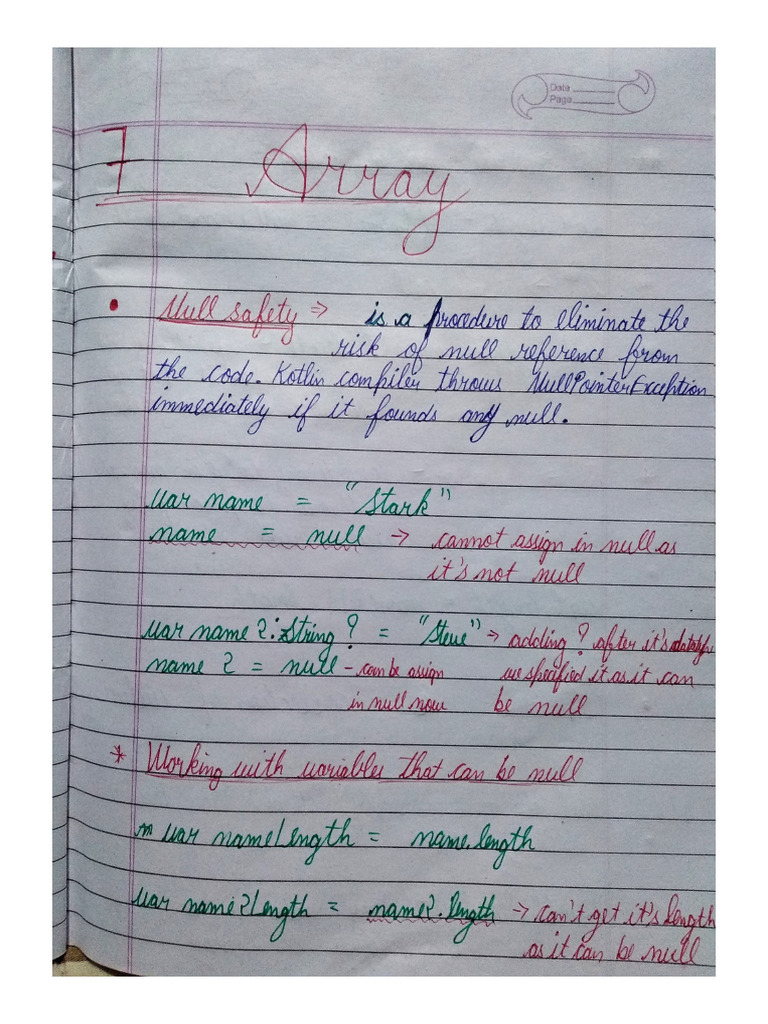 Date
Page
7 Array
• Null safety ⇒ is a procedure to eliminate the
risk of null reference from
the code. Kotlin compiler throws NullPointerException
immediately if it founds any null.
var name = "Stark"
name = null → cannot assign in null as
it's not null
var name2: String? = "Steve" → adding ? after it's datatype
name 2 = null - can be assign we specified it as it can
in null now be null
* Working with variables that can be null
var nameLength = name.length
var name2Length = name2.length → can't get it's length
as it can be null